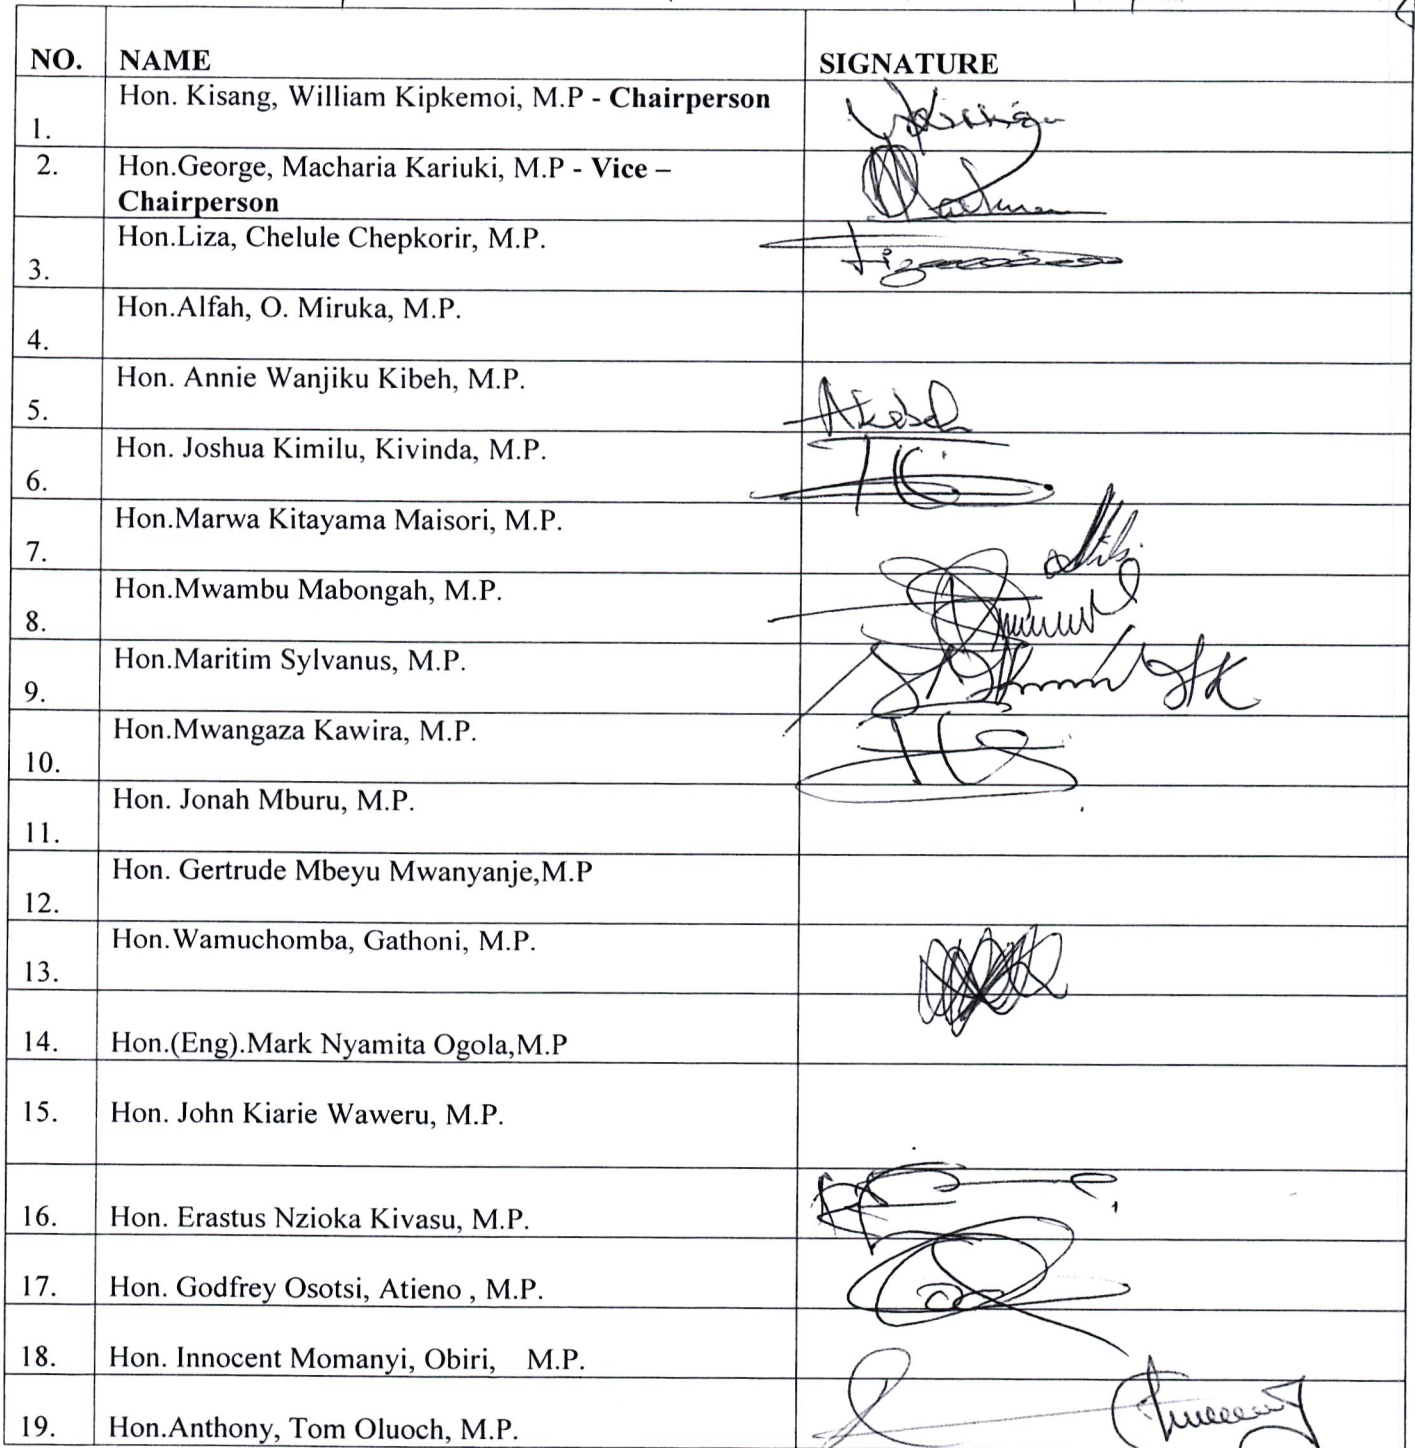 NO. NAME SIGNATURE
1. Hon. Kisang, William Kipkemoi, M.P - Chairperson
2. Hon.George, Macharia Kariuki, M.P - Vice –
Chairperson
3. Hon.Liza, Chelule Chepkorir, M.P.
4. Hon.Alfah, O. Miruka, M.P.
5. Hon. Annie Wanjiku Kibeh, M.P.
6. Hon. Joshua Kimilu, Kivinda, M.P.
7. Hon.Marwa Kitayama Maisori, M.P.
8. Hon.Mwambu Mabongah, M.P.
9. Hon.Maritim Sylvanus, M.P.
10. Hon.Mwangaza Kawira, M.P.
11. Hon. Jonah Mburu, M.P.
12. Hon. Gertrude Mbeyu Mwanyanje,M.P
13. Hon.Wamuchomba, Gathoni, M.P.
14. Hon.(Eng).Mark Nyamita Ogola,M.P
15. Hon. John Kiarie Waweru, M.P.
16. Hon. Erastus Nzioka Kivasu, M.P.
17. Hon. Godfrey Osotsi, Atieno , M.P.
18. Hon. Innocent Momanyi, Obiri, M.P.
19. Hon.Anthony, Tom Oluoch, M.P.